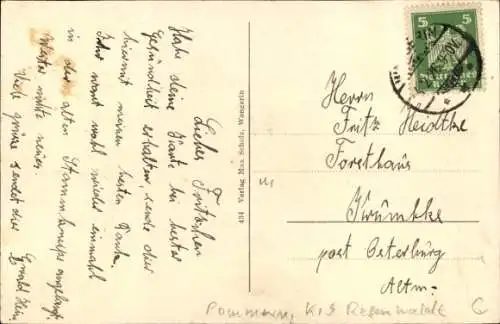 Lieber Fritzchen
Habe deine Karte bei bester
Gesundheit erhalten, sende dir
hiermit meinen besten Dank.
wohl wieder einmal
in der alten Stammkneipe
Werter
Viele grüsse sendet dir
434 Verlag Max Scholz, Wangerin
5 5
Deutsches Reich
Herrn
Fritz Heidtke
Forsthaus
Krumbke
post Osterburg
Altm.
Pommern, KrS Regenwalde